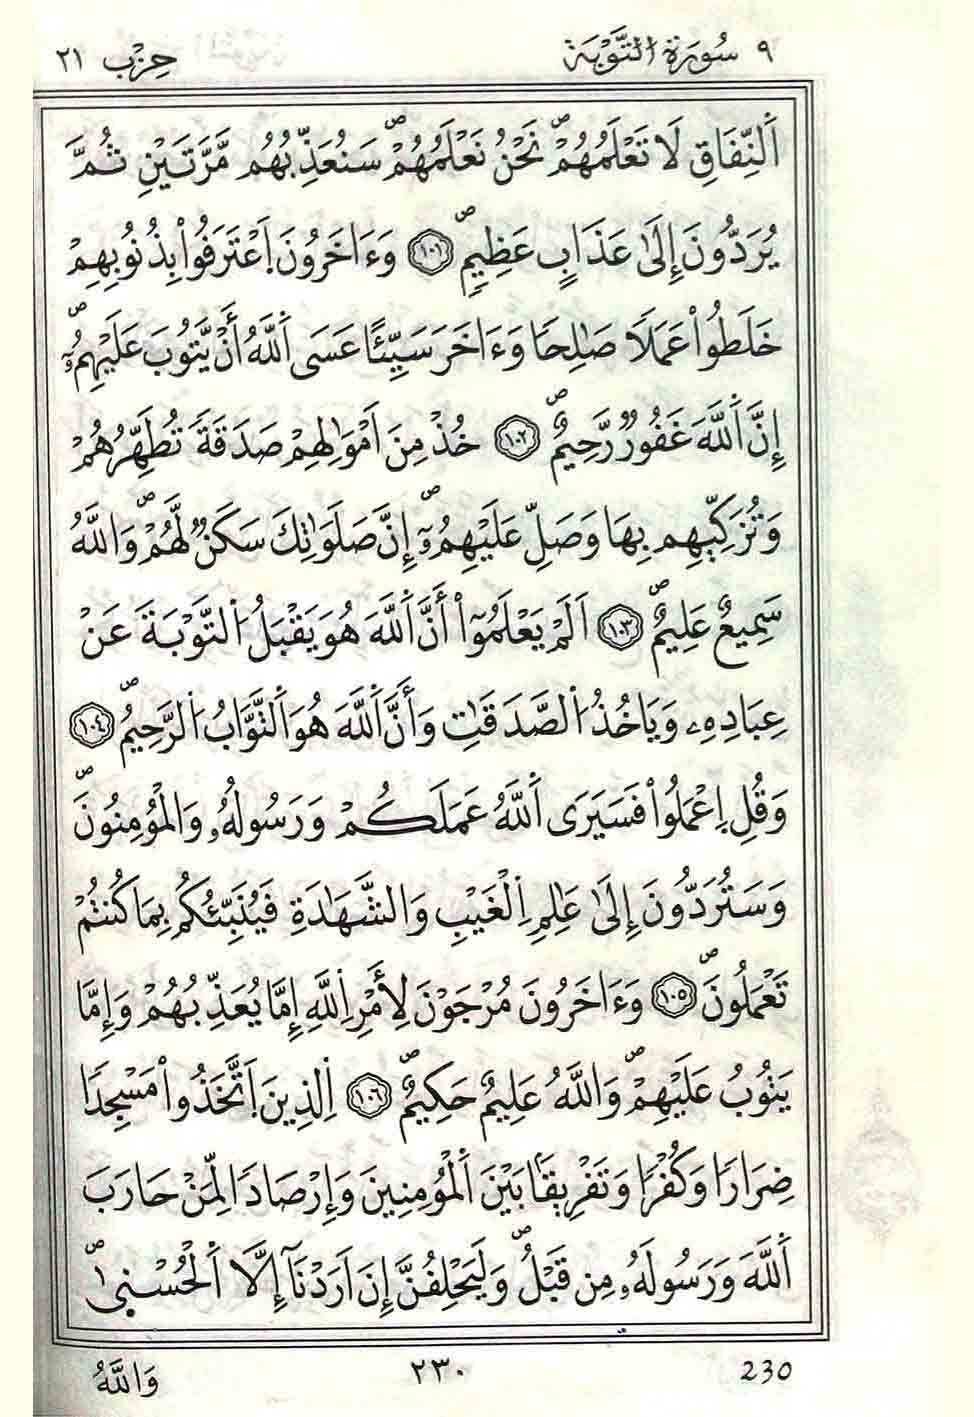 ٩ سُورَةُ التَّوْبَةِ حِزْب ٢١
اَ۬لنِّفَاقِ لَا تَعْلَمُهُمْۖ نَحْنُ نَعْلَمُهُمْۖ سَنُعَذِّبُهُم مَّرَّتَيْنِ ثُمَّ
يُرَدُّونَ إِلَىٰ عَذَابٍ عَظِيمٖۖ ١٠١ وَءَاخَرُونَ اَ۪عْتَرَفُواْ بِذُنُوبِهِمْ
خَلَطُواْ عَمَلاٗ صَٰلِحاٗ وَءَاخَرَ سَيِّئاًۖ عَسَى اَ۬للَّهُ أَنْ يَّتُوبَ عَلَيْهِمُۥٓۖ
إِنَّ اَ۬للَّهَ غَفُورٞ رَّحِيمٌۖ ١٠٢ خُذْ مِنَ اَمْوَٰلِهِمْ صَدَقَةٗ تُطَهِّرُهُمْ
وَتُزَكِّيهِم بِهَا وَصَلِّ عَلَيْهِمُۥٓۖ إِنَّ صَلَوَٰتِكَ سَكَنٞ لَّهُمْۖ وَاللَّهُ
سَمِيعٌ عَلِيمٌۖ ١٠٣ اَلَمْ يَعْلَمُوٓاْ أَنَّ اَ۬للَّهَ هُوَ يَقْبَلُ اُ۬لتَّوْبَةَ عَنْ
عِبَادِهِۦ وَيَاخُذُ اُ۬لصَّدَقَٰتِ وَأَنَّ اَ۬للَّهَ هُوَ اَ۬لتَّوَّابُ اُ۬لرَّحِيمُۖ ١٠٤
وَقُلِ اِ۪عْمَلُواْ فَسَيَرَى اَ۬للَّهُ عَمَلَكُمْ وَرَسُولُهُۥ وَالْمُؤْمِنُونَۖ
وَسَتُرَدُّونَ إِلَىٰ عَٰلِمِ اِ۬لْغَيْبِ وَالشَّهَٰدَةِ فَيُنَبِّئُكُم بِمَا كُنتُمْ
تَعْمَلُونَۖ ١٠٥ وَءَاخَرُونَ مُرْجَوْنَ لِأَمْرِ اِ۬للَّهِ إِمَّا يُعَذِّبُهُمْ وَإِمَّا
يَتُوبُ عَلَيْهِمْۖ وَاللَّهُ عَلِيمٌ حَكِيمٌۖ ١٠٦ اِ۬لذِينَ اَ۪تَّخَذُواْ مَسْجِداٗ
ضِرَاراٗ وَكُفْراٗ وَتَفْرِيقاَۢ بَيْنَ اَ۬لْمُؤْمِنِينَ وَإِرْصَاداٗ لِّمَنْ حَارَبَ
اَ۬للَّهَ وَرَسُولَهُۥ مِن قَبْلُۖ وَلَيَحْلِفُنَّ إِنَ اَرَدْنَآ إِلَّا اَ۬لْحُسْنَىٰۖ
230 ٢٣٠ وَاللَّهُ